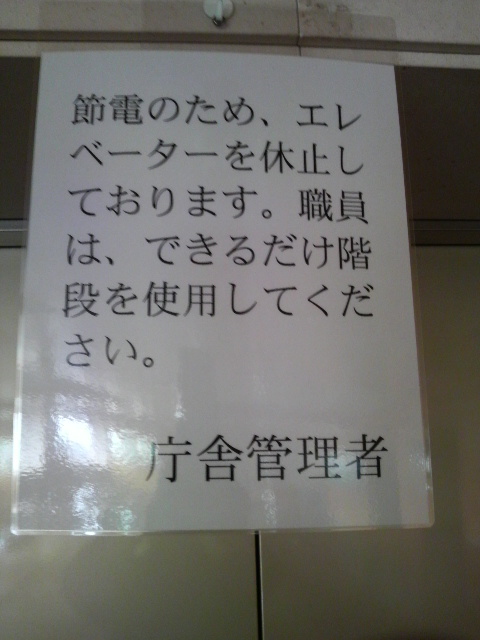 節電のため、エレ
ベーターを休止し
ております。職員
は、できるだけ階
段を使用してくだ
さい。
庁舎管理者